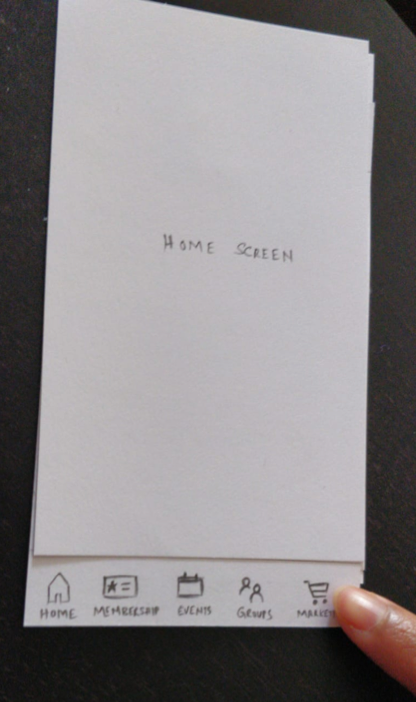 HOME SCREEN
HOME MEMBERSHIP EVENTS GROUPS